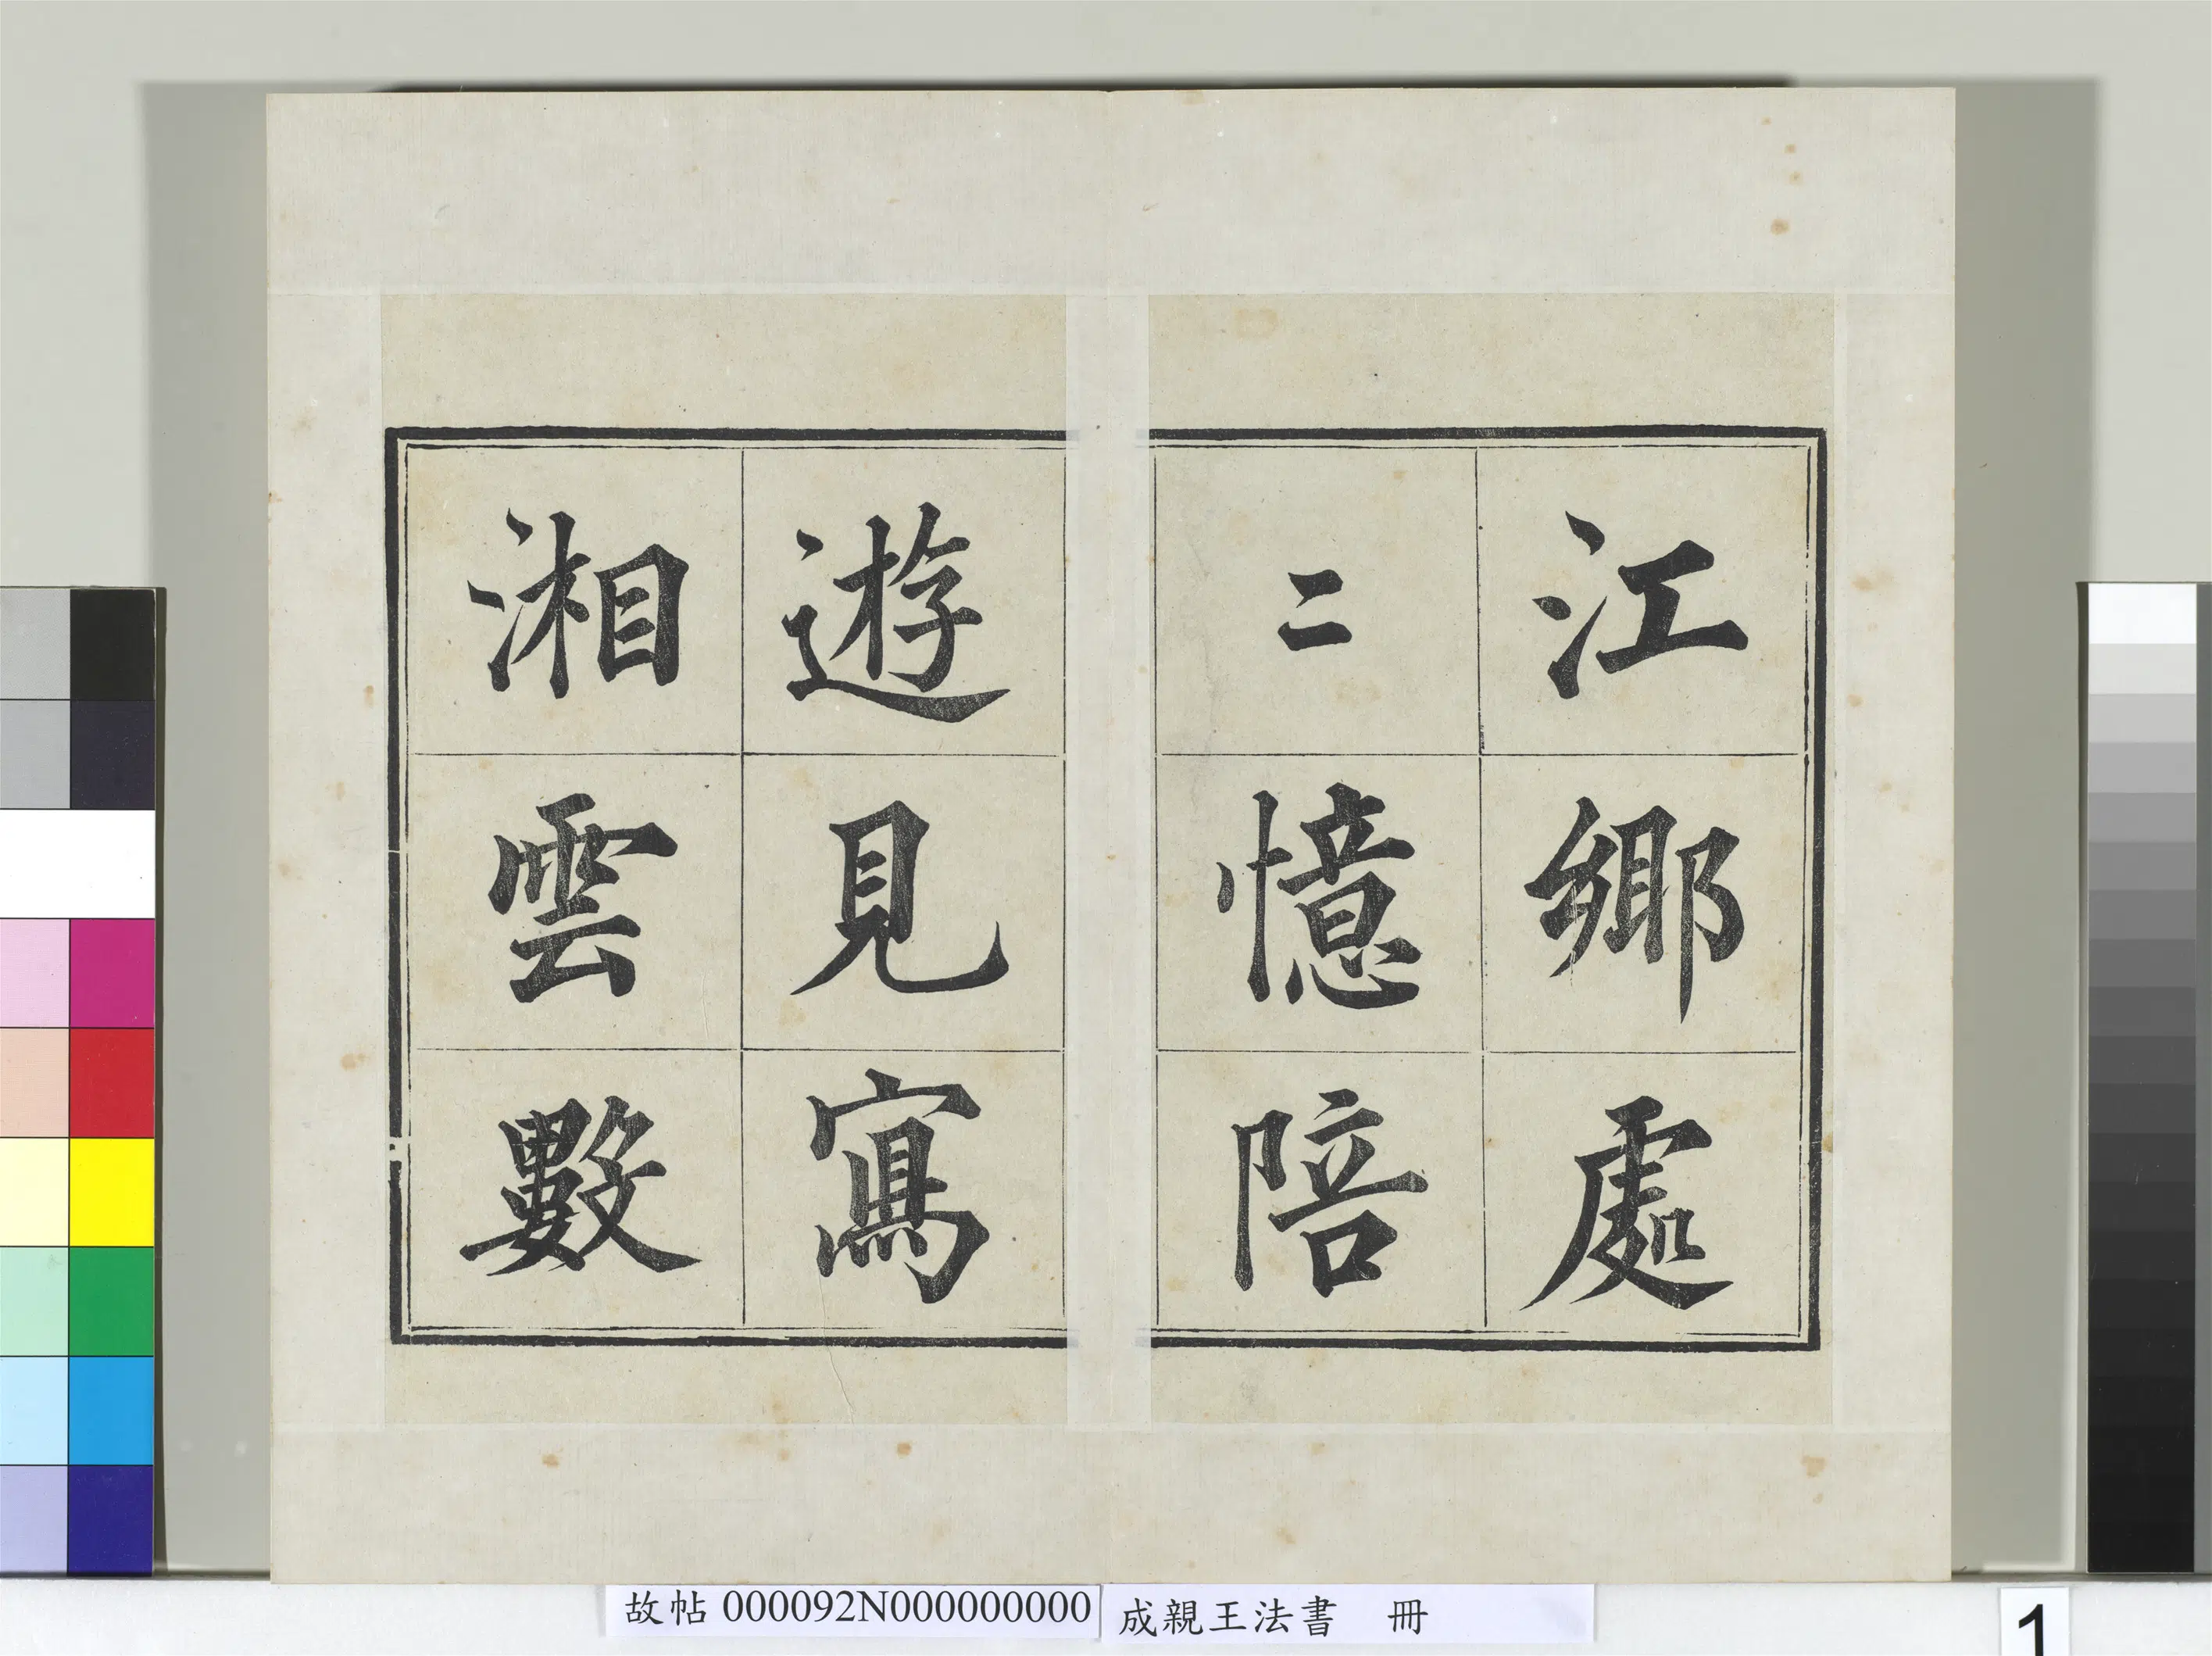 江鄉處
二憶陪
遊見寫
湘雲數
故帖 000092N000000000
成親王法書 冊
1